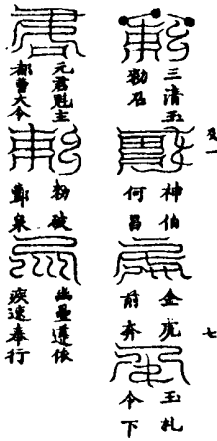 三清玉
勑召
神伯
何昌
金虎
前奔
玉札
令下
元君魁主
都曹大令
粉破
酆泉
幽壘遵依
疾速奉行
一
七